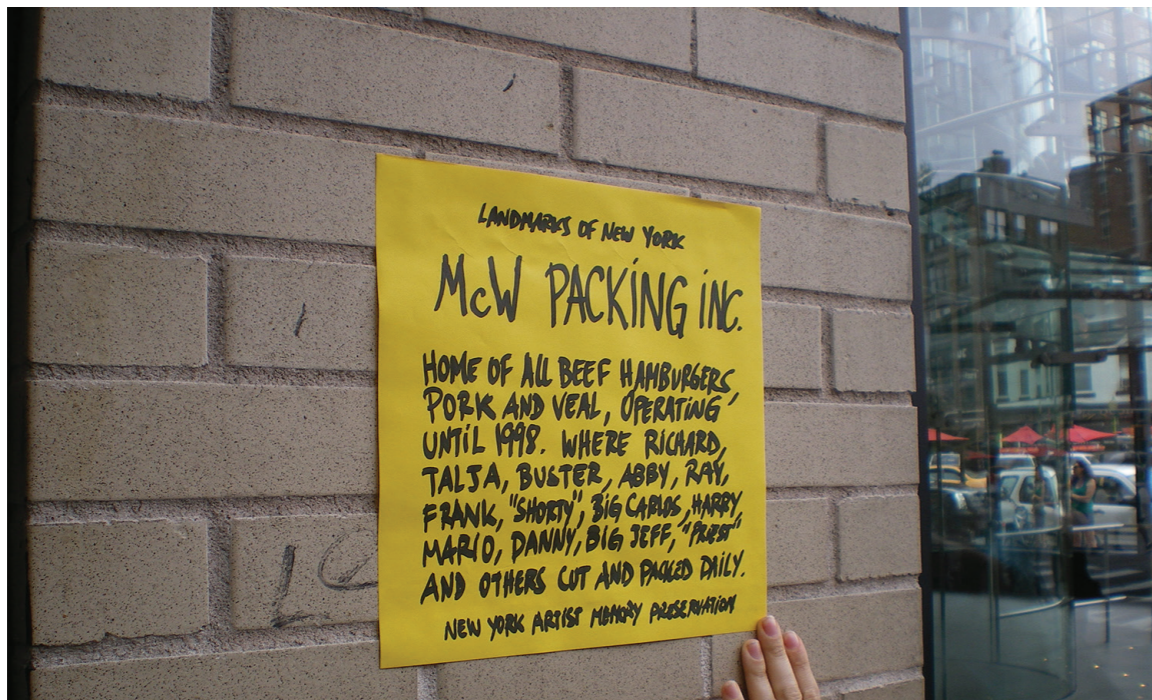 LANDMARKS OF NEW YORK
McW PACKING INC.
HOME OF ALL BEEF HAMBURGERS,
PORK AND VEAL, OPERATING
UNTIL 1998. WHERE RICHARD,
TALJA, BUSTER, ABBY, RAY,
FRANK, "SHORTY", BIG CARLOS, HARRY,
MARIO, DANNY, BIG JEFF, "PRIEST"
AND OTHERS CUT AND PACKED DAILY.
NEW YORK ARTIST MEMORY PRESERVATION